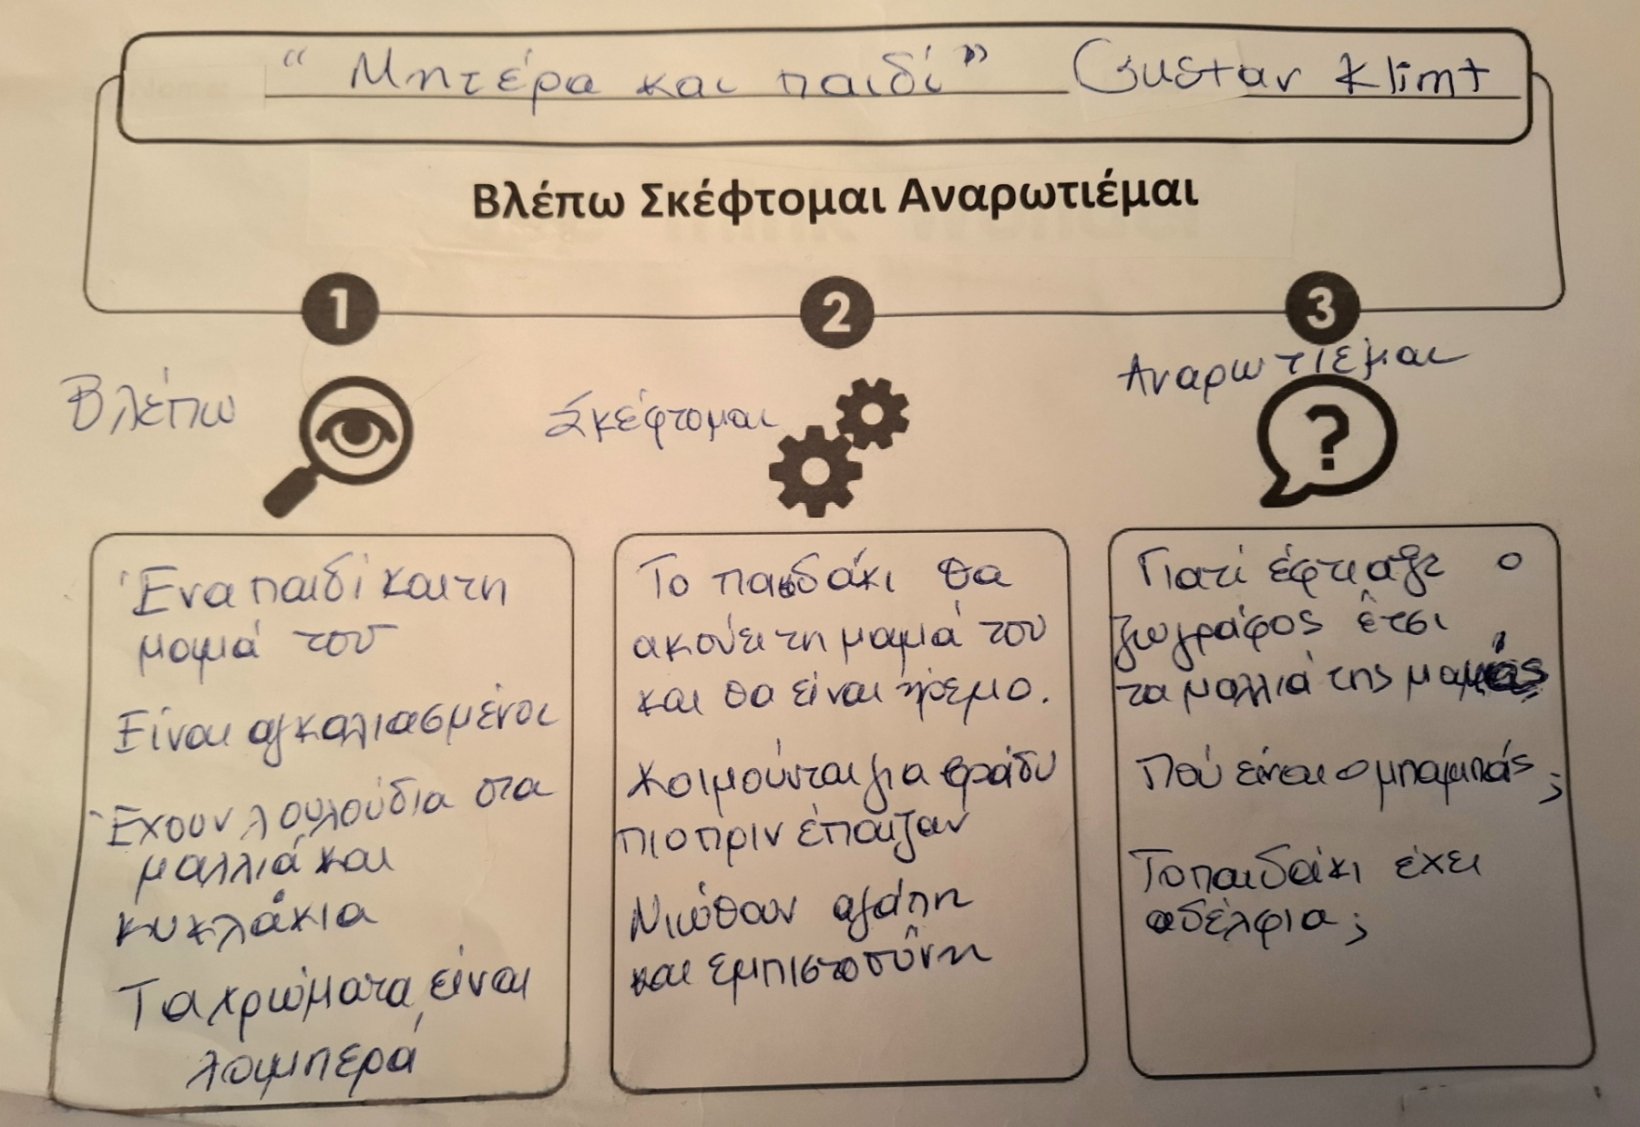 “Μητέρα και παιδί” Gustav Klimt
Βλέπω Σκέφτομαι Αναρωτιέμαι
1
2
3
Βλέπω
Σκέφτομαι
Αναρωτιέμαι
?
Ένα παιδί και τη
μαμά του
Είναι αγκαλιασμένοι
Έχουν λουλούδια στα
μαλλιά και
κυκλάκια
Τα χρώματα είναι
λαμπερά
Το παιδάκι θα
ακούει τη μαμά του
και θα είναι ήρεμο.
Κοιμούνται για βράδυ
πιο πριν έπαιζαν
Νιώθουν αγάπη
και εμπιστοσύνη
Γιατί έφτιαξε ο
ζωγράφος έτσι
τα μαλλιά της μαμάς;
Πού είναι ο μπαμπάς;
Το παιδάκι έχει
αδέλφια;